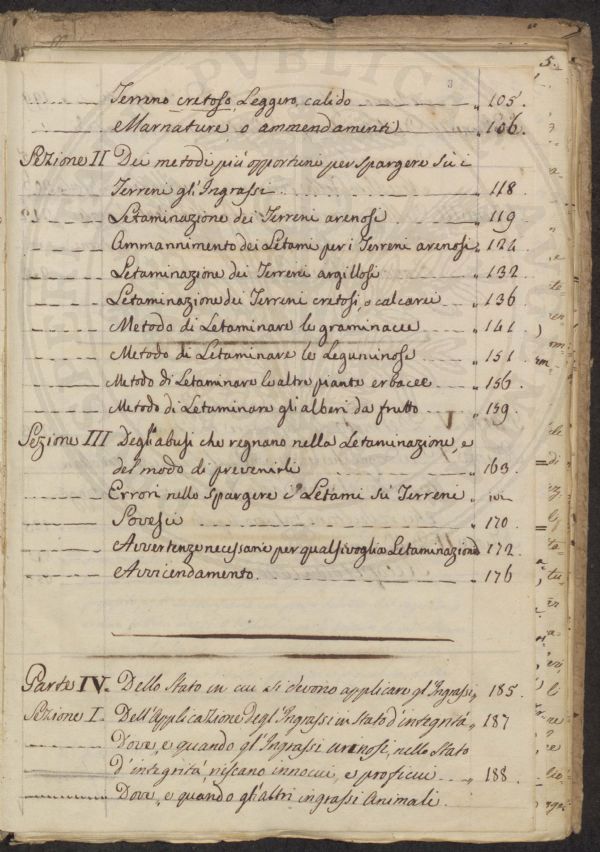 Terreno cretoso, Leggero, calido " 105.
Marnature o ammendamenti " 106.
Sezione II Dei metodi piú opportuni per spargere sú i
Terreni gl'Ingrassi " 118.
Letaminazione dei Terreni arenosi " 119
Ammannimento dei Letami per i Terreni arenosi " 124
Letaminazione dei Terreni argillosi " 132
Letaminazione dei Terreni cretosi, o calcarei " 136
Metodo di Letaminare le graminacee " 141
Metodo di Letaminare le Leguminose " 151
Metodo di Letaminare le altre piante erbacee " 156
Metodo di Letaminare gli alberi da frutto " 159.
Sezione III Degli abusi che regnano nella Letaminazione, e
del modo di prevenirli " 163.
Errori nello Spargere i Letami sú Terreni " ivi
Sovesci " 170
Avvertenze necessarie per qualsivoglia Letaminazione 172
Avvicendamento. " 176
Parte IV. Dello Stato in cui si devono applicare gl'Ingrassi " 185
Sezione I. Dell'Applicazione degl'Ingrassi in Stato d'integrità " 187
Dove, e quando gl'Ingrassi arenosi, nello Stato
d'integrità, riescano innocui, e proficui " 188.
Dove, e quando gli altri ingrassi Animali.